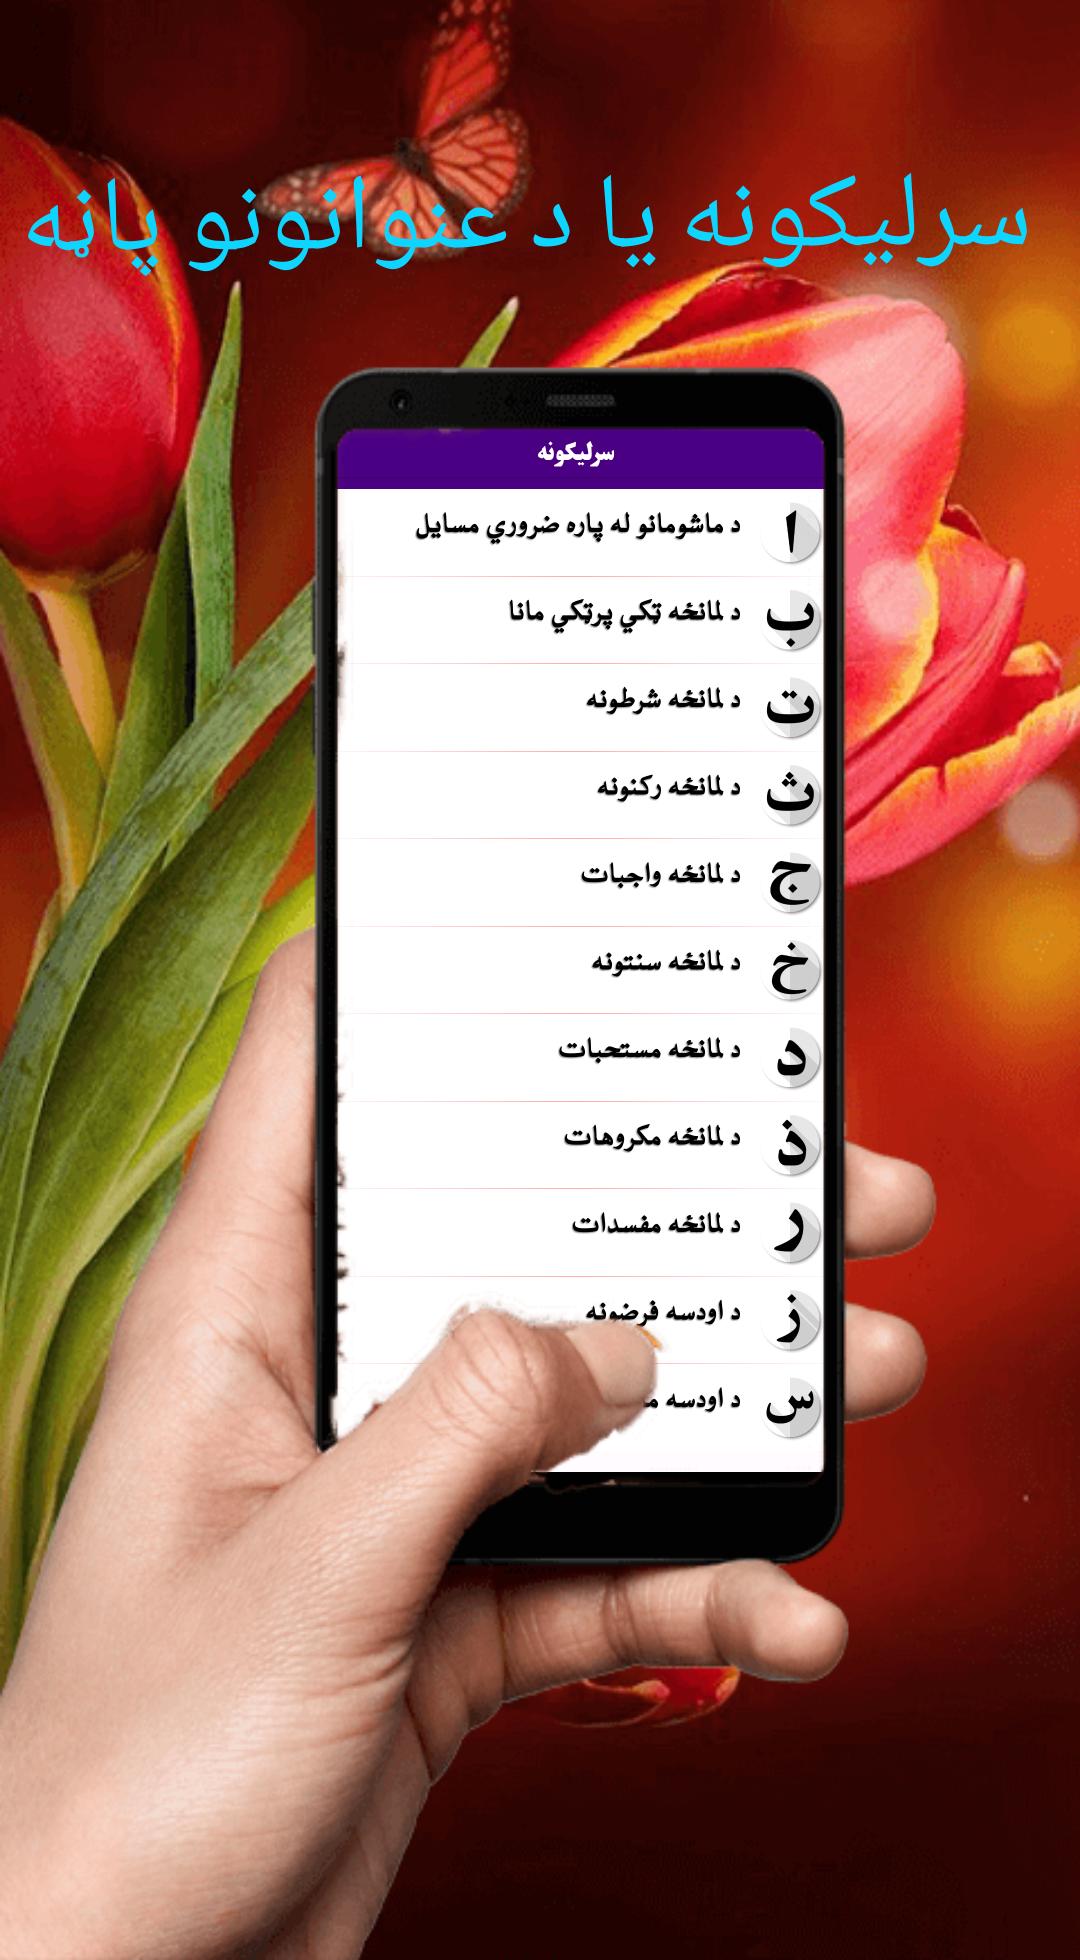 سرليکونه يا د عنوانونو پاڼه
سرليکونه
ا
د ماشومانو له پاره ضروري مسايل
ب
د لمانځه ټکي پرټکي مانا
ت
د لمانځه شرطونه
ث
د لمانځه رکنونه
ج
د لمانځه واجبات
خ
د لمانځه سنتونه
د
د لمانځه مستحبات
ذ
د لمانځه مکروهات
ر
د لمانځه مفسدات
ز
د اودسه فرضونه
س
د اودسه